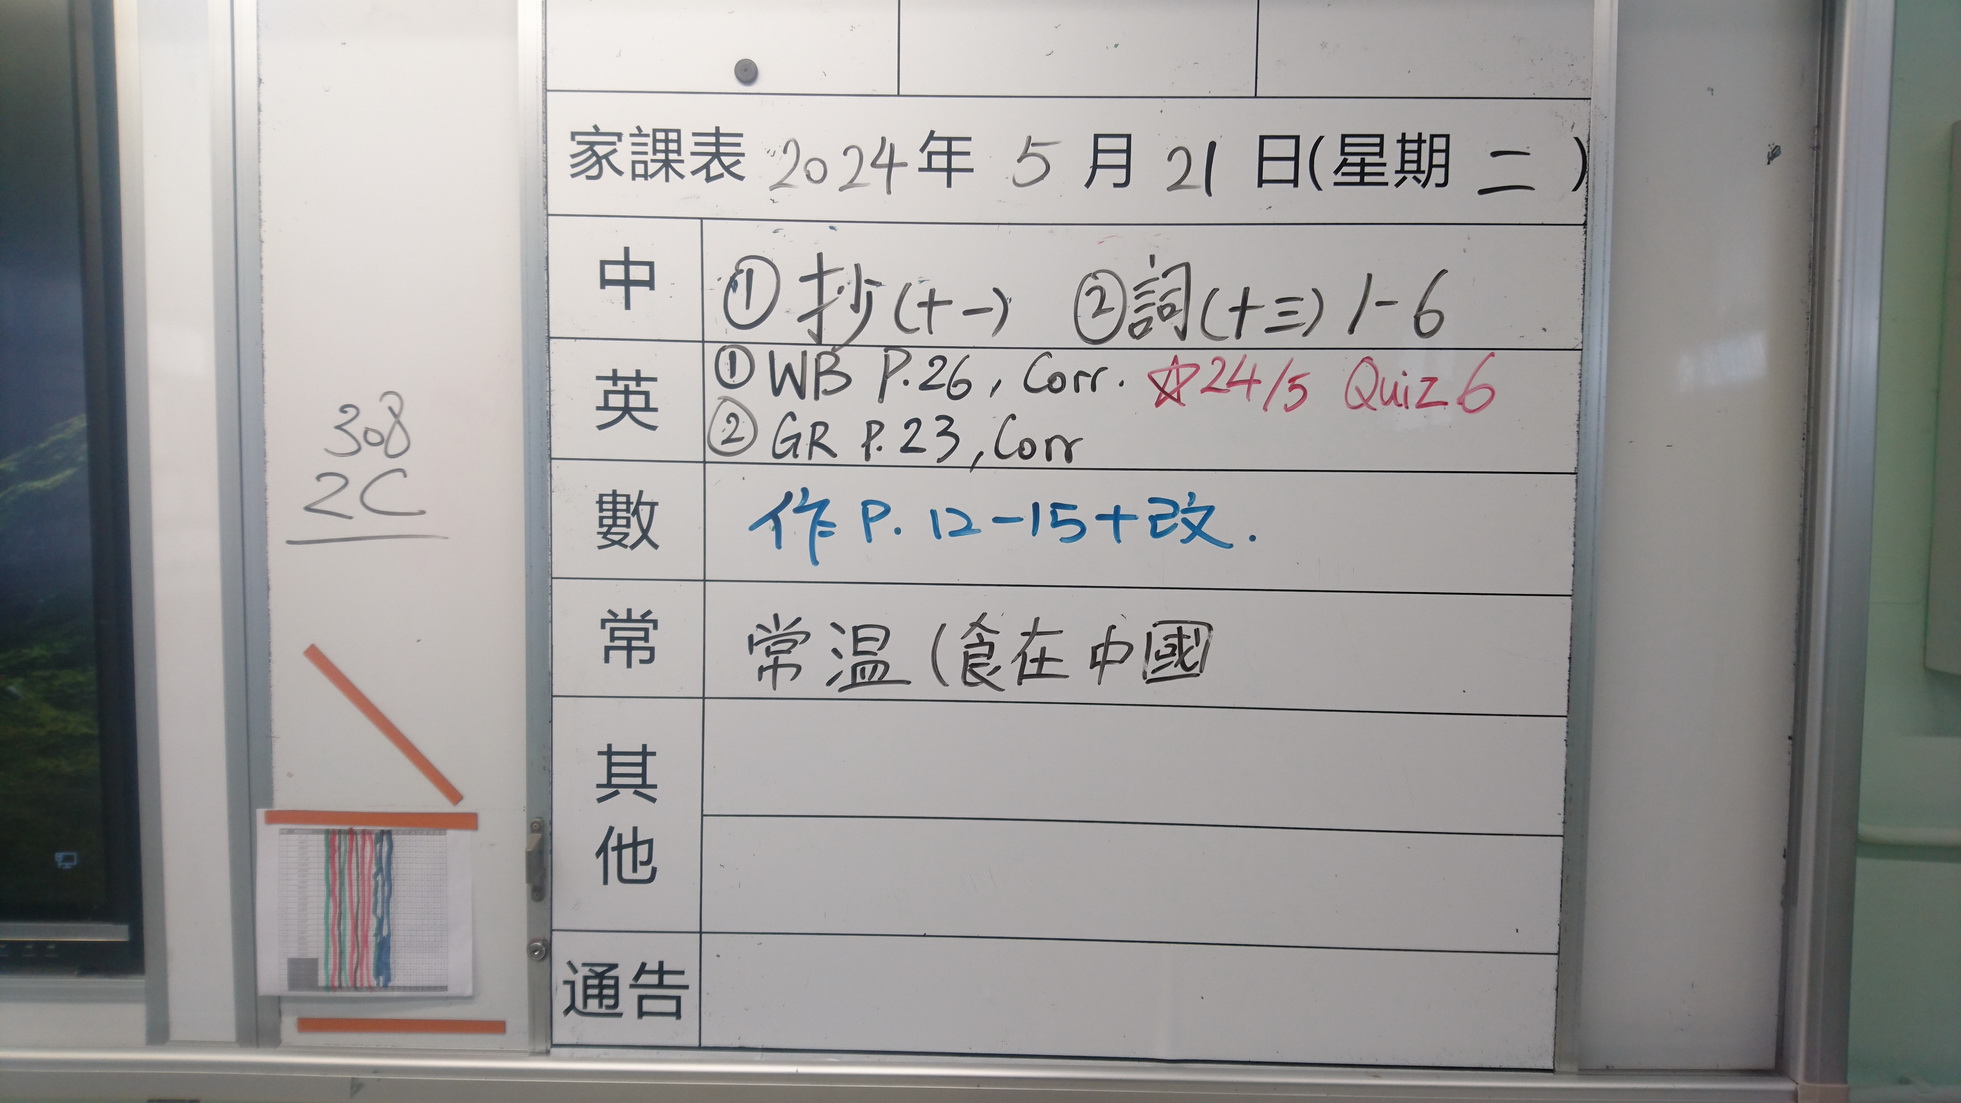 家課表 2024年 5月 21日(星期 二)
中 ①抄(十一) ②詞(十三) 1-6
英 ①WB P.26, Corr. ☆24/5 Quiz 6
②GR P.23, Corr
數 作 P. 12-15+改.
常 常温 (食在中國
其他
通告
308
2C